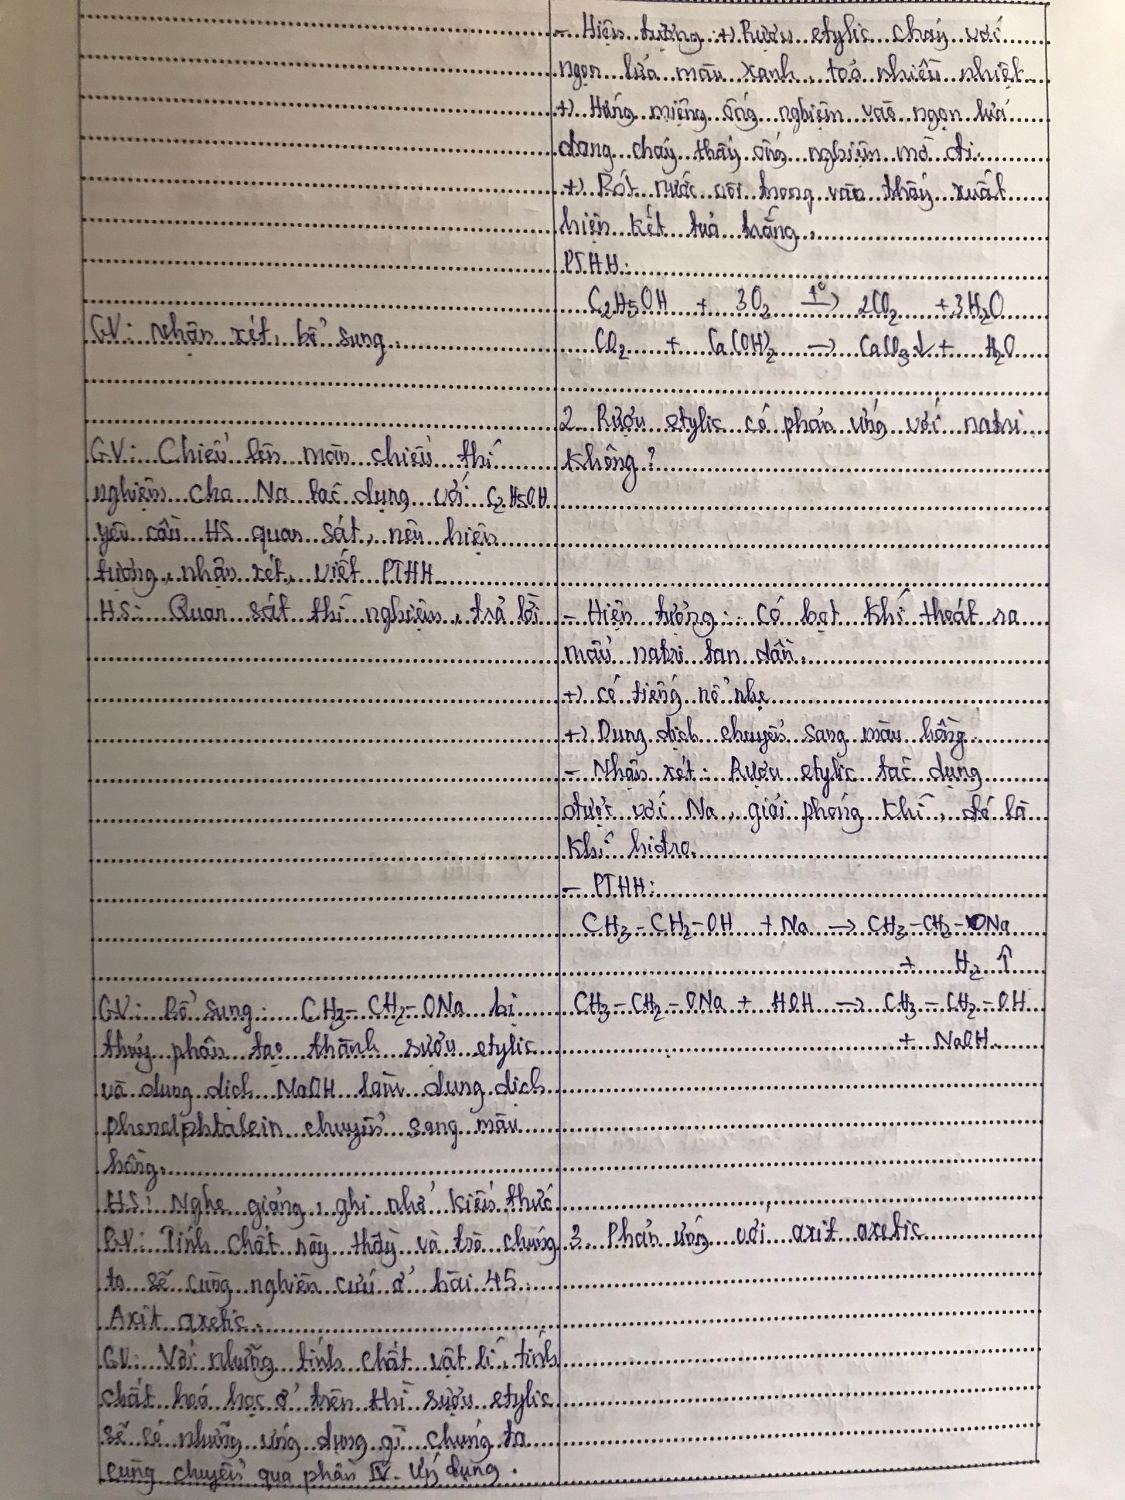 - Hiện tượng: +) Rượu etylic cháy với
ngọn lửa màu xanh, toả nhiều nhiệt
+) Hứng miệng ống nghiệm vào ngọn lửa
đang cháy thấy ống nghiệm mờ đi.
+) Rót nước vôi trong vào thấy xuất
hiện kết tủa trắng.
PTHH:
C2H5OH + 3O2 →(t°) 2CO2 + 3H2O
GV: Nhận xét, bổ sung.
CO2 + Ca(OH)2 → CaCO3↓ + H2O
2. Rượu etylic có phản ứng với natri
không?
GV: Chiếu lên màn chiếu thí
nghiệm cho Na tác dụng với C2H5OH
yêu cầu HS quan sát, nêu hiện
tượng, nhận xét, viết PTHH
HS: Quan sát thí nghiệm, trả lời
- Hiện tượng: Có bọt khí thoát ra
mẩu natri tan dần.
+) có tiếng nổ nhẹ
+) Dung dịch chuyển sang màu hồng
- Nhận xét: Rượu etylic tác dụng
được với Na, giải phóng khí, đó là
khí hiđro.
- PTHH:
CH3-CH2-OH + Na → CH3-CH2-ONa
+ H2 ↑
GV: Bổ sung: CH3-CH2-ONa bị
thuỷ phân tạo thành rượu etylic
và dung dịch NaOH làm dung dịch
phenolphtalein chuyển sang màu
hồng.
CH3-CH2-ONa + HOH → CH3-CH2-OH
+ NaOH
HS: Nghe giảng, ghi nhớ kiến thức
GV: Tính chất này thầy và trò chúng
ta sẽ cùng nghiên cứu ở bài 45:
Axit axetic.
3. Phản ứng với axit axetic
GV: Với những tính chất vật lí, tính
chất hoá học ở trên thì rượu etylic
sẽ có những ứng dụng gì chúng ta
cùng chuyển qua phần IV. Ứng dụng.